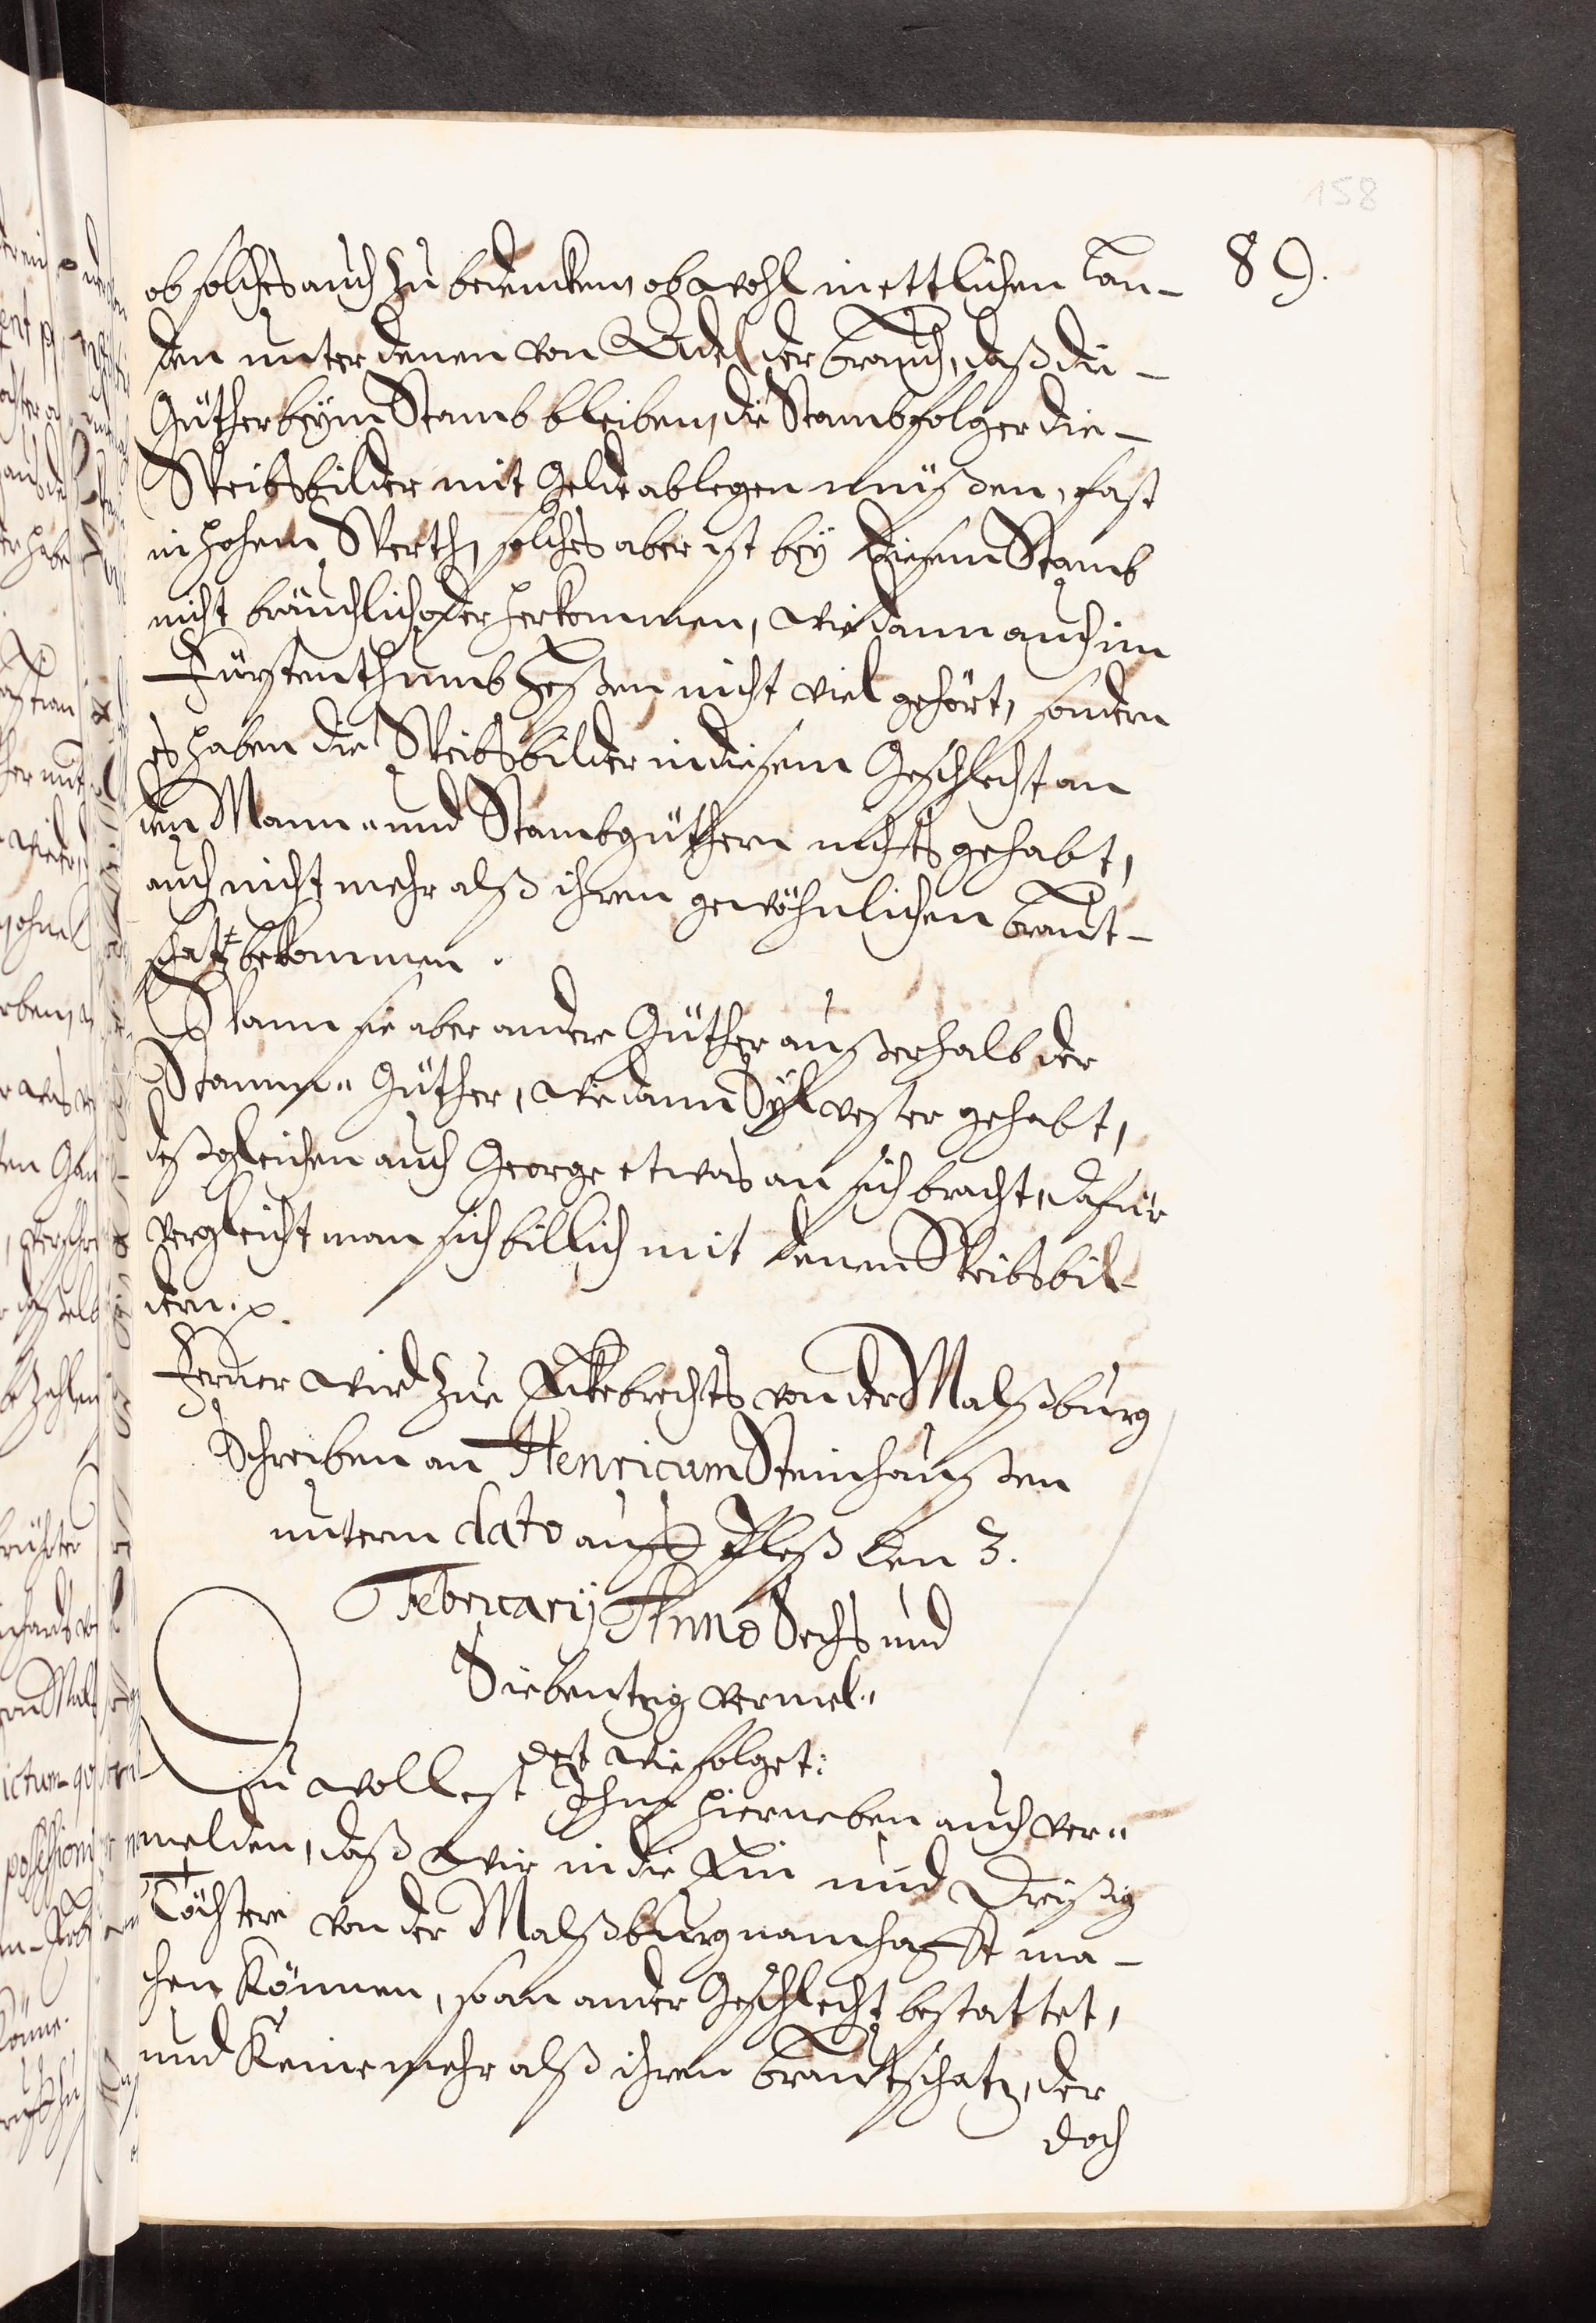 158
89.
ob solches auch zu bedencken, obwohl in ettlichen Lan-
den unter denen von Adel der brauch, daß die-
Güther beÿm Stamb bleiben, die Stambfolger die-
Weibsbilder mit Gelde ablegen müßen, fast
in hohem Werth, solches aber ist beÿ diesem Stamb
nicht bräuchlich oder herkommen, wie dann auch im
Fürstenthumb Heßen nicht viel gehört, sondern
es haben die Weibsbilder in diesem Geschlecht an
den Mann- und Stambgüthern nichts gehabt,
auch nicht mehr alß ihren gewöhnlichen braut-
schatz bekommen.
Wann sie aber andere Güther außerhalb der
Stamm- Güther, wie dann Sÿlvester gehabt,
deßgleichen auch George etwas an sich bracht, dafür
vergleicht man sich billich mit denen Weibsbil-
dern.
Ferner wird zue Eckebrechts von der Malßburg
Schreiben an Henricum Steinhaußen
unterm dato auff Pleß den 3.
Februarÿ Anno Sechs und
Siebentzig vermel-
det wie folget:
Du wollest Ihme hierneben auch ver-
melden, daß wir in die Ein und Dreißig
Töchtere von der Malßburg namhafft ma-
chen können, so an ander Geschlecht bestattet,
und Keine mehr alß ihren brautschatz, der
doch